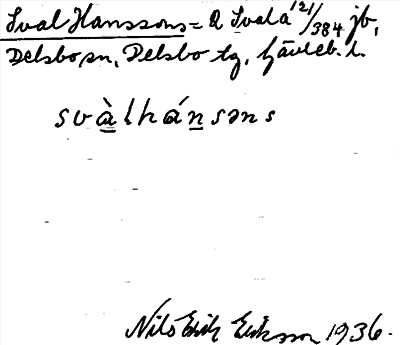 Sval Hanssons = 2 Svala 121/384 jb,
Delsbo sn, Delsbo tg, Gävleb. l.
svàlhánsəns
Nils Erik Eriksson 1936.